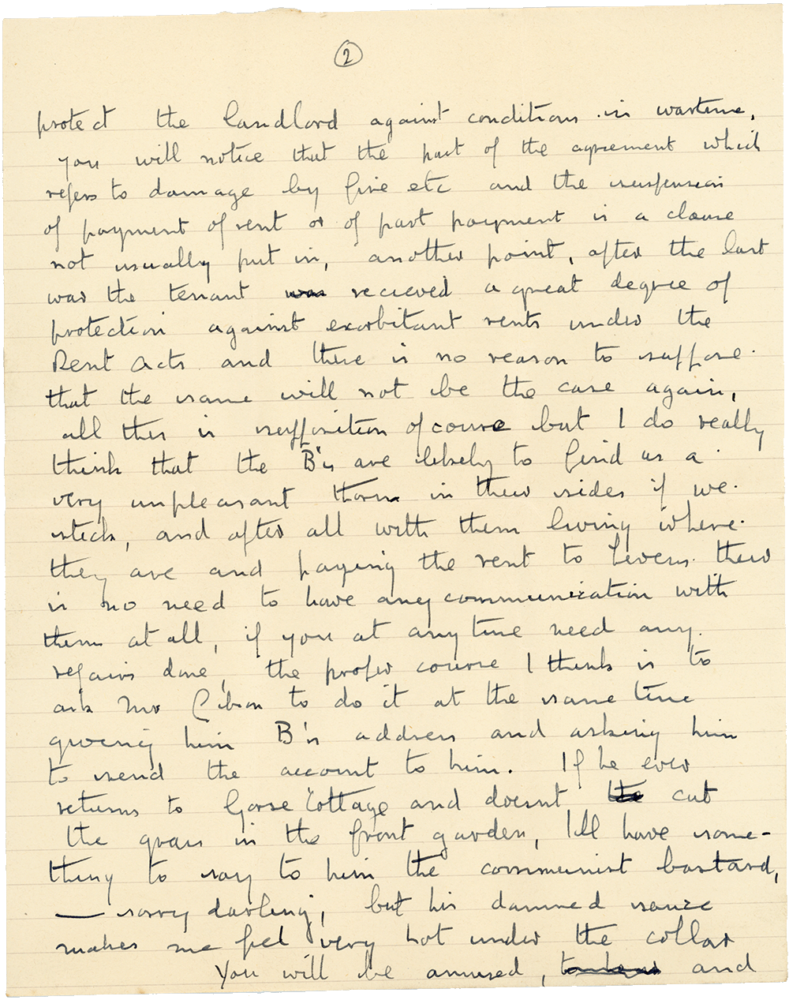 2
protect the landlord against conditions in wartime,
you will notice that the part of the agreement which
refers to damage by fire etc and the suspension
of payment of rent or of part payment is a clause
not usually put in, another point, after the last
war the tenant was recieved a great degree of
protection against exorbitant rents under the
Rent Acts and there is no reason to suppose
that the same will not be the case again,
all this is supposition of course but I do really
think that the B's are likely to find us a
very unpleasant thorn in their sides if we
stick, and after all with them living where
they are and paying the rent to Levens there
is no need to have any communication with
them at all, if you at any time need any
repairs done, the proper course I think is to
ask Mr to do it at the same time
giving him B's address and asking him
to send the account to him. If he ever
returns to Gorse Cottage and doesnt cut
the grass in the front garden, I'll have some-
thing to say to him the communist bastard,
— sorry darling, but his damned sauce
makes me feel very hot under the collar
You will be amused, and